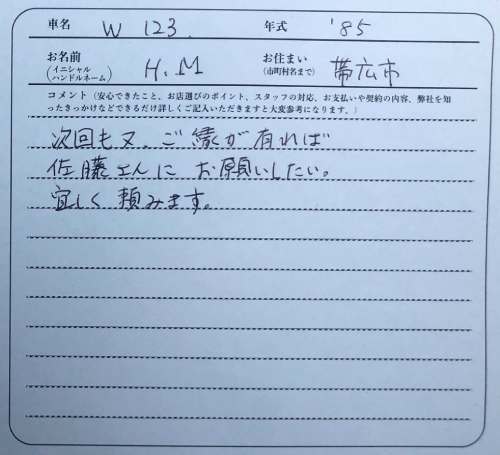 車名 W 123. 年式 '85
お名前 (イニシャル ハンドルネーム) H.M お住まい (市町村名まで) 帯広市
コメント（安心できたこと、お店選びのポイント、スタッフの対応、お支払いや契約の内容、弊社を知
ったきっかけなどできるだけ詳しくご記入いただきますと大変参考になります。）
次回も又、ご縁が有れば
佐藤さんに お願いしたい。
宜しく 頼みます。